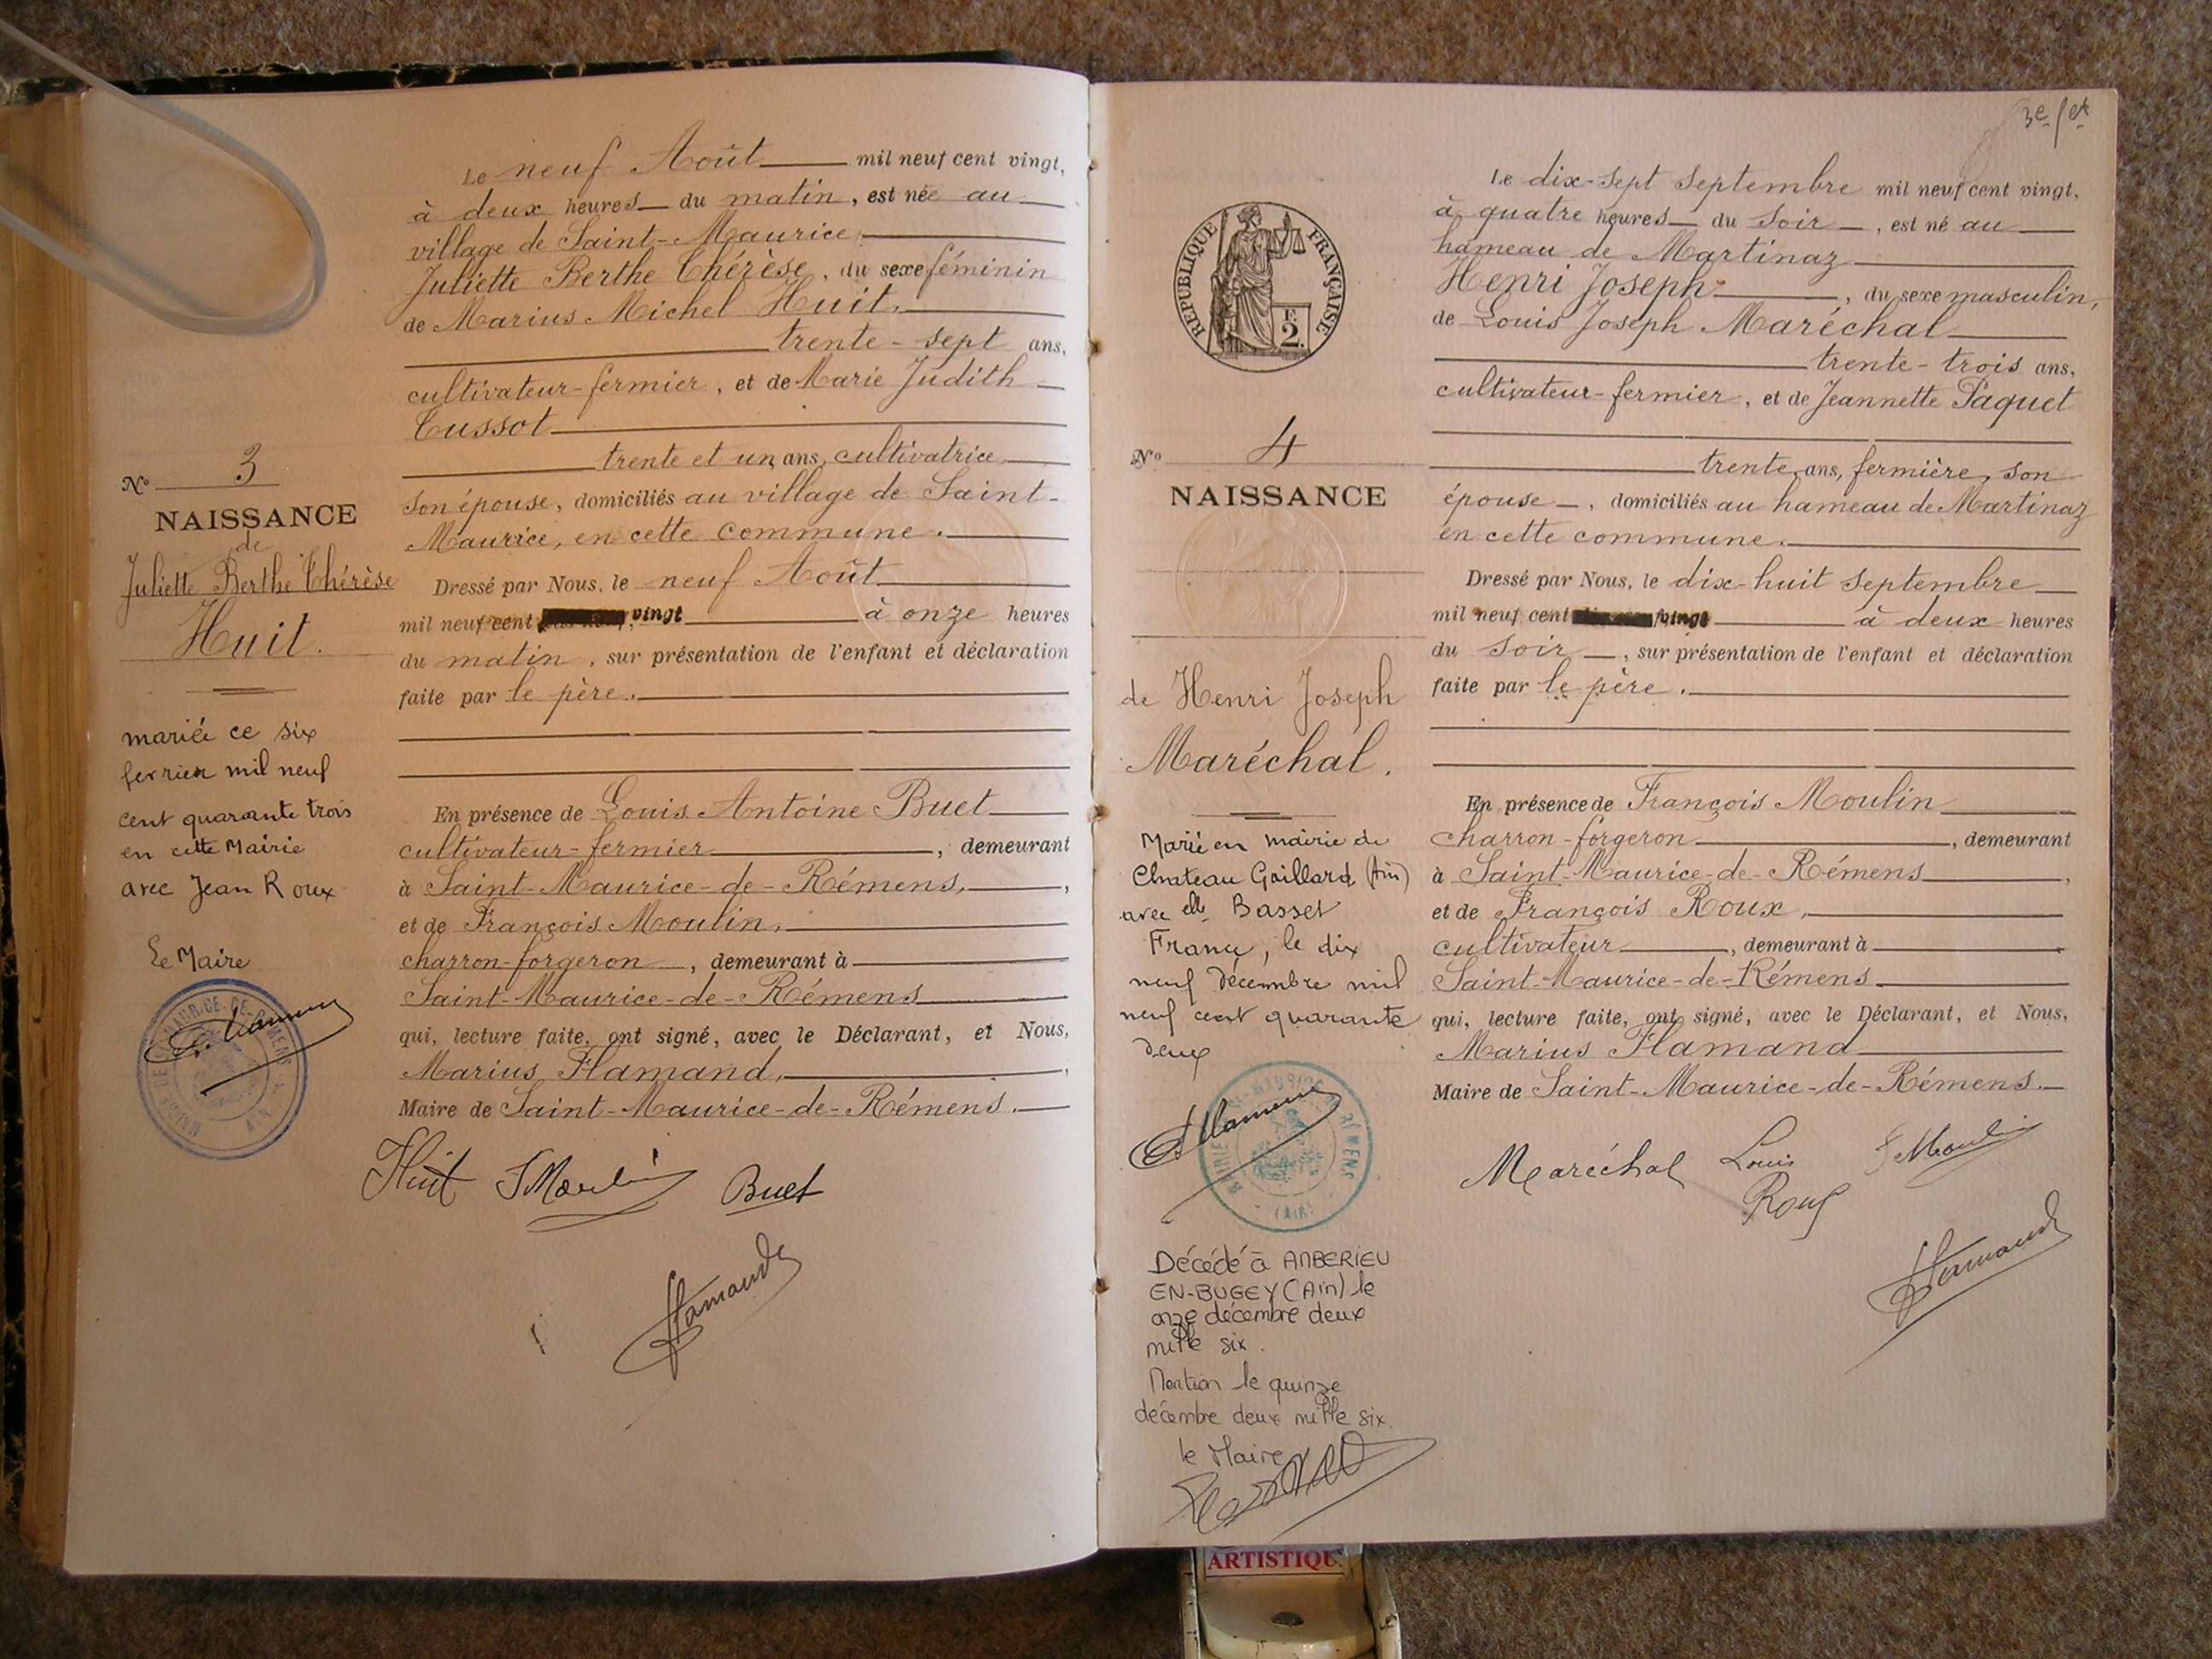 Le neuf Août mil neuf cent vingt,
à deux heures du matin, est née au
village de Saint-Maurice,
Juliette Berthe Thérèse, du sexe féminin
de Marius Michel Huit,
trente-sept ans,
cultivateur-fermier, et de Marie Judith
Tussot
trente et un ans, cultivatrice
son épouse, domiciliés au village de Saint-
Maurice, en cette commune.
Dressé par Nous, le neuf Août
mil neuf cent vingt à onze heures
du matin, sur présentation de l'enfant et déclaration
faite par le père.
En présence de Louis Antoine Buet
cultivateur-fermier, demeurant
à Saint-Maurice-de-Rémens,
et de François Moulin,
charron-forgeron, demeurant à
Saint-Maurice-de-Rémens
qui, lecture faite, ont signé, avec le Déclarant, et Nous,
Marius Flamand,
Maire de Saint-Maurice-de-Rémens.
Huit F Moulin Buet
Flamand
No 3
NAISSANCE
de
Juliette Berthe Thérèse
Huit.
mariée ce six
fevrier mil neuf
cent quarante trois
en cette Mairie
avec Jean Roux
Le Maire
3e fet
REPUBLIQUE FRANÇAISE
F.
2.
No 4
NAISSANCE
de Henri Joseph
Maréchal.
Marié en mairie de
Chateau Gaillard (Ain)
avec elle Basset
France, le dix
neuf décembre mil
neuf cent quarante
deux
Décédé à AMBERIEU
EN-BUGEY (Ain) le
onze décembre deux
mille six.
Mention le quinze
décembre deux mille six.
le Maire
Le dix-sept Septembre mil neuf cent vingt,
à quatre heures du soir, est né au
hameau de Martinaz
Henri Joseph, du sexe masculin,
de Louis Joseph Maréchal
trente-trois ans,
cultivateur-fermier, et de Jeannette Paquet
trente ans, fermière, son
épouse, domiciliés au hameau de Martinaz
en cette commune.
Dressé par Nous, le dix-huit Septembre
mil neuf cent vingt à deux heures
du soir, sur présentation de l'enfant et déclaration
faite par le père.
En présence de François Moulin
charron-forgeron, demeurant
à Saint-Maurice-de-Rémens,
et de François Roux,
cultivateur, demeurant à
Saint-Maurice-de-Rémens.
qui, lecture faite, ont signé, avec le Déclarant, et Nous,
Marius Flamand
Maire de Saint-Maurice-de-Rémens.
Maréchal Louis F Moulin
Roux
Flamand
ARTISTIQU